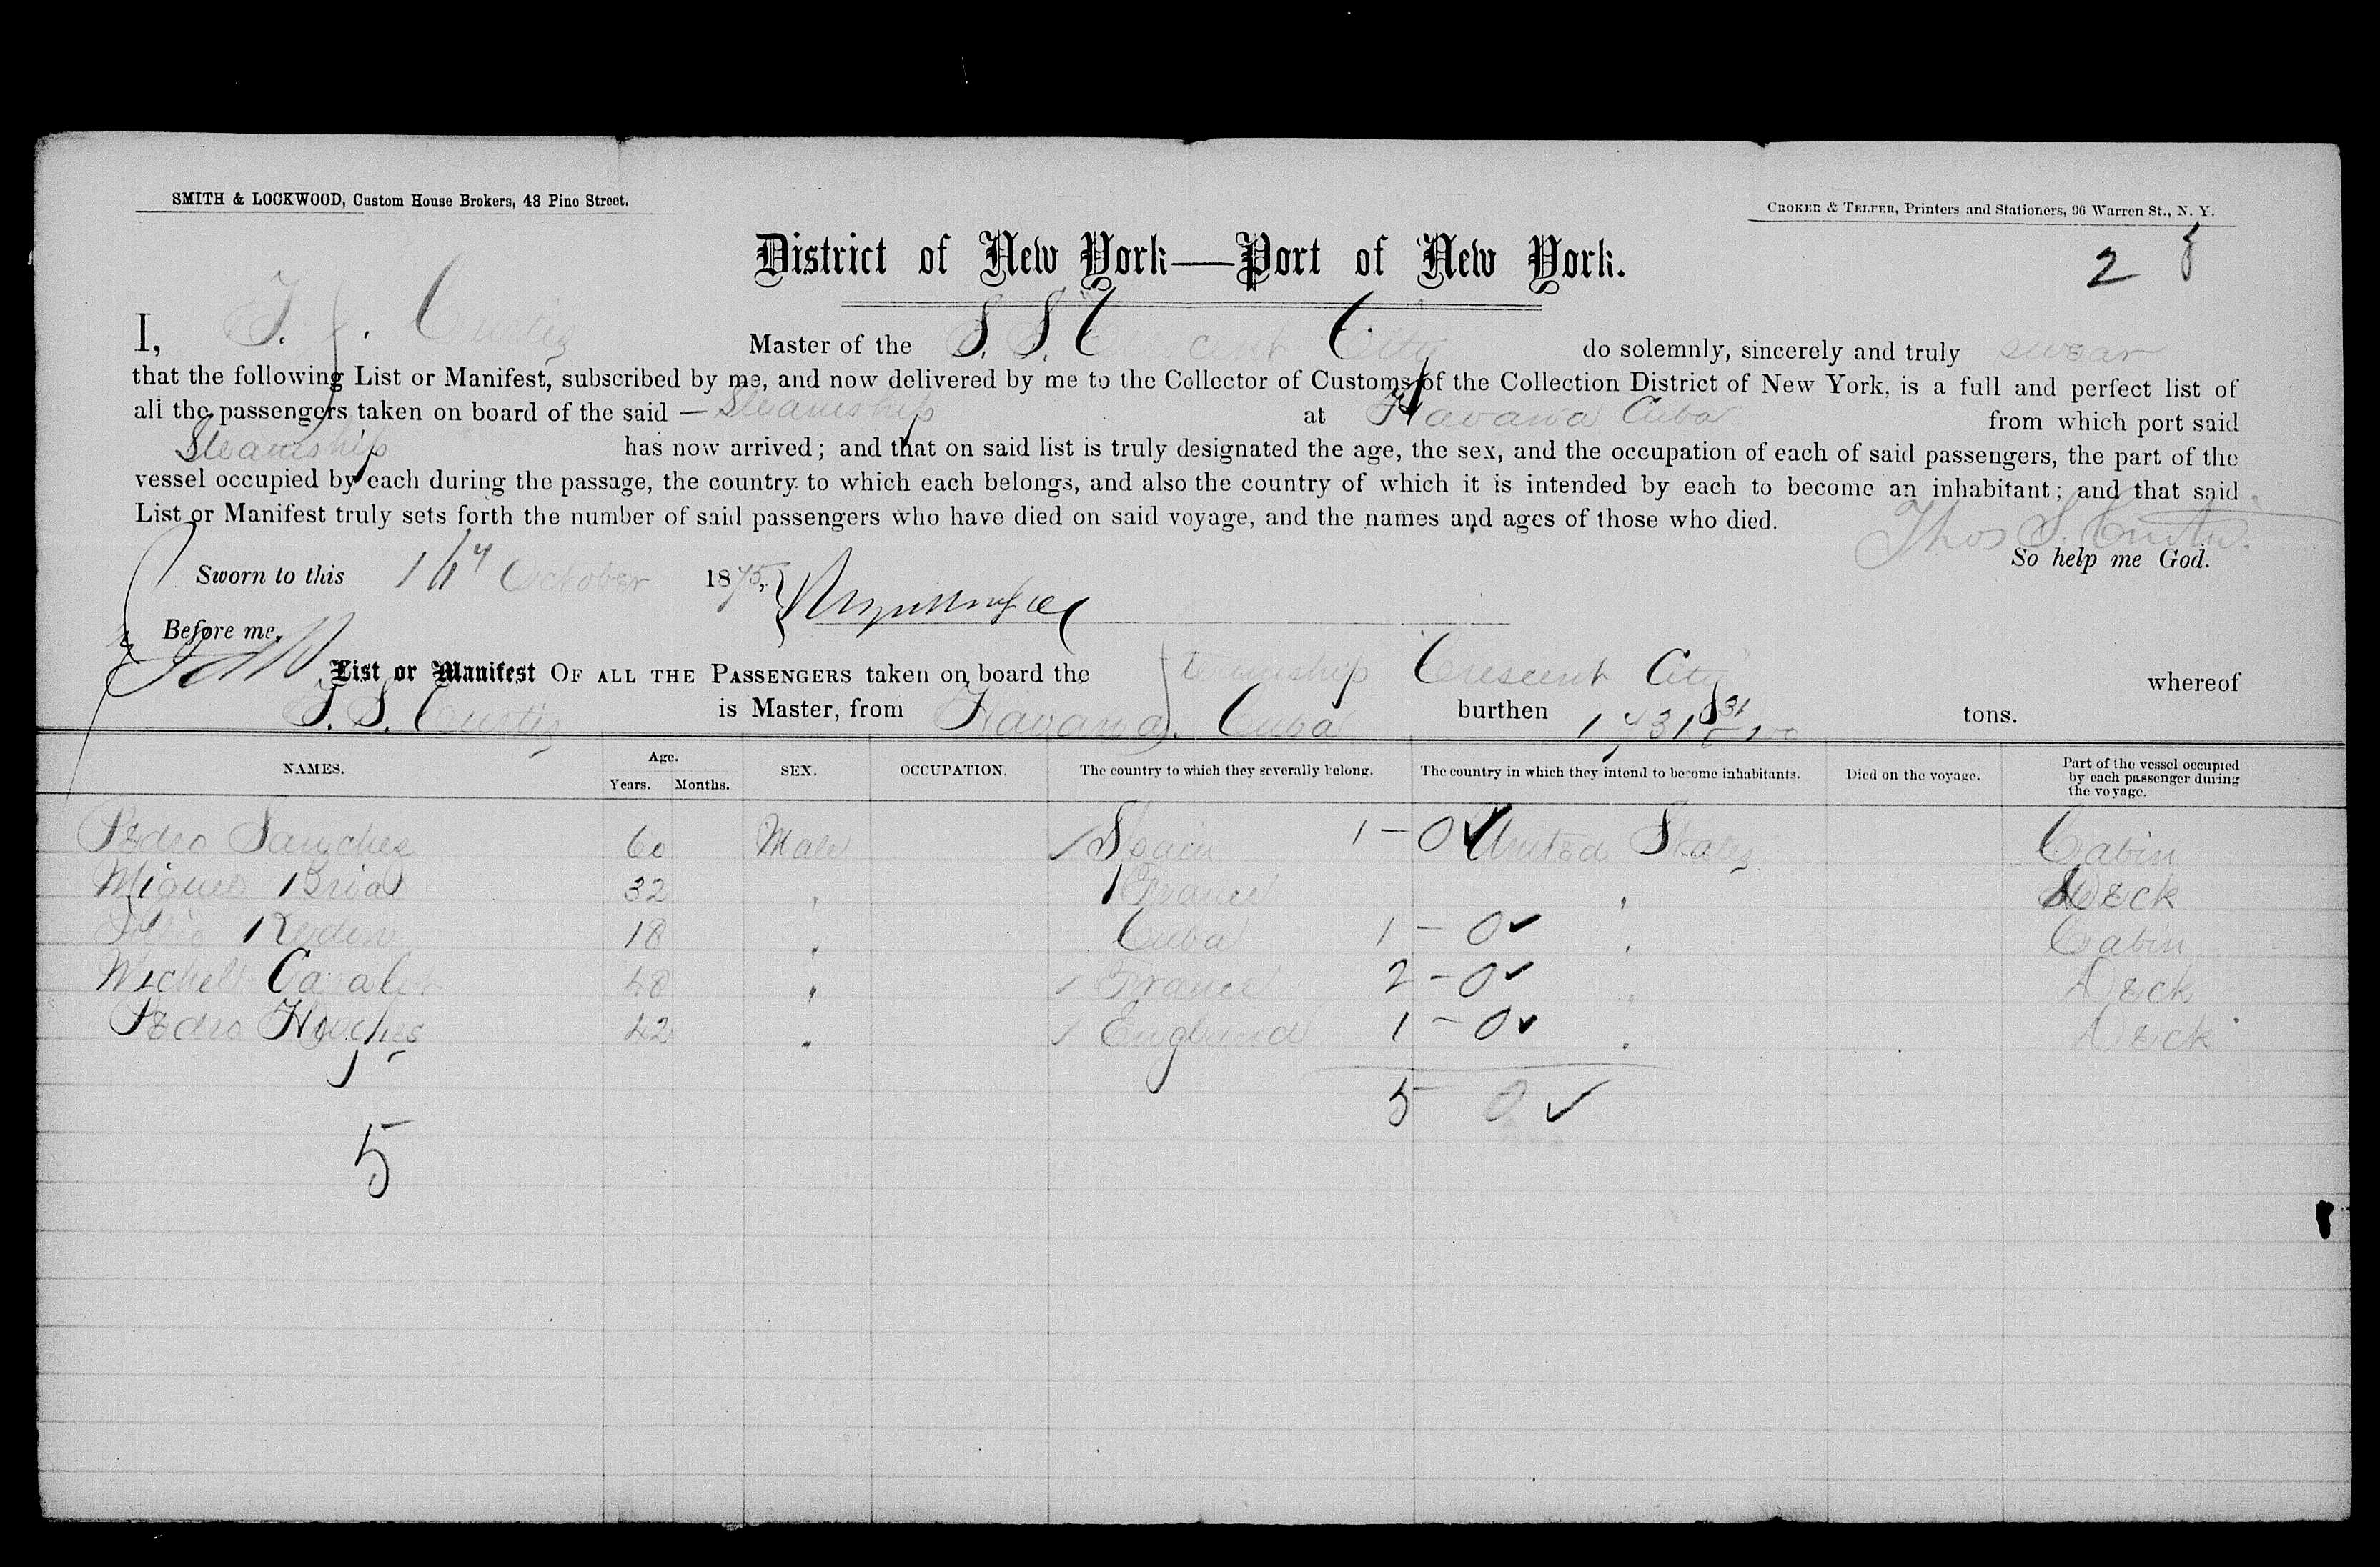 SMITH & LOCKWOOD, Custom House Brokers, 48 Pine Street.
CROKER & TELFER, Printers and Stationers, 96 Warren St., N. Y.
District of New York—Port of New York.
2 8
I, T. S. Curtis Master of the S. S. Crescent City do solemnly, sincerely and truly swear
that the following List or Manifest, subscribed by me, and now delivered by me to the Collector of Customs of the Collection District of New York, is a full and perfect list of
all the passengers taken on board of the said — Steamship at Havana Cuba from which port said
Steamship has now arrived; and that on said list is truly designated the age, the sex, and the occupation of each of said passengers, the part of the
vessel occupied by each during the passage, the country to which each belongs, and also the country of which it is intended by each to become an inhabitant; and that said
List or Manifest truly sets forth the number of said passengers who have died on said voyage, and the names and ages of those who died.
Thos S. Curtis.
So help me God.
Sworn to this October 1875,
Before me,
List or Manifest OF ALL THE PASSENGERS taken on board the Steamship Crescent City whereof
T. S. Curtis is Master, from Havana, Cuba burthen tons.
NAMES. Age. Years. Months. SEX. OCCUPATION. The country to which they severally belong. The country in which they intend to become inhabitants. Died on the voyage. Part of the vessel occupied by each passenger during the voyage.
Pedro Sanchez 60 Male ✓ Spain 1 — 0 ✓ United States Cabin
Miguel Brial 32 " France " Deck
18 " Cuba 1 — 0 ✓ " Cabin
Michel 48 " ✓ France 2 — 0 ✓ " Deck
Pedro Hughes 42 " ✓ England 1 — 0 ✓ " Deck
5 0 ✓
5